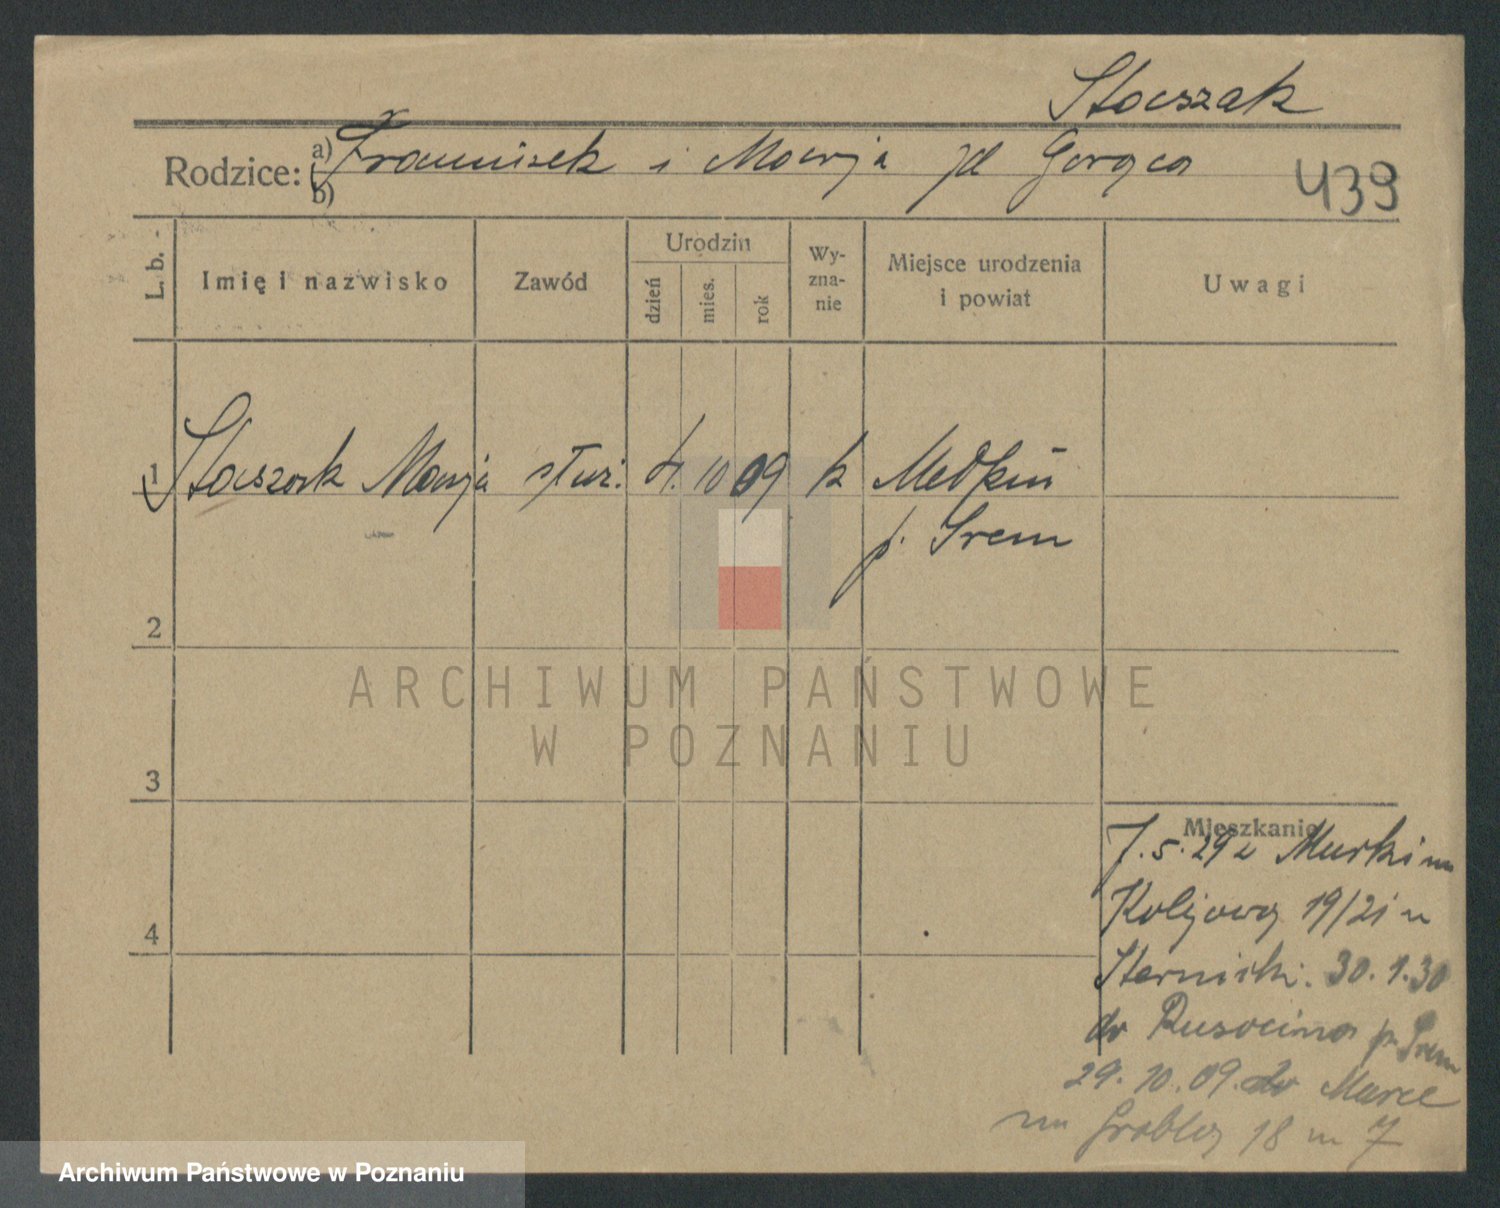 Staszak
Rodzice: a) Franciszek i Marja zd Gorąca
b)
439
L. b.
Imię i nazwisko
Zawód
Urodzin
dzień
mies.
rok
Wy-
zna-
nie
Miejsce urodzenia
i powiat
Uwagi
1 Staszak Marja służ. 4. 10 09 k
p. Śrem
2
3
4
Mieszkanie
7.5.29 z Murki na
19/21 u
30.1.30
do Rusocina p. Śrem
29.10.09. do
na Grobla 18 m 7
ARCHIWUM PAŃSTWOWE
W POZNANIU
Archiwum Państwowe w Poznaniu